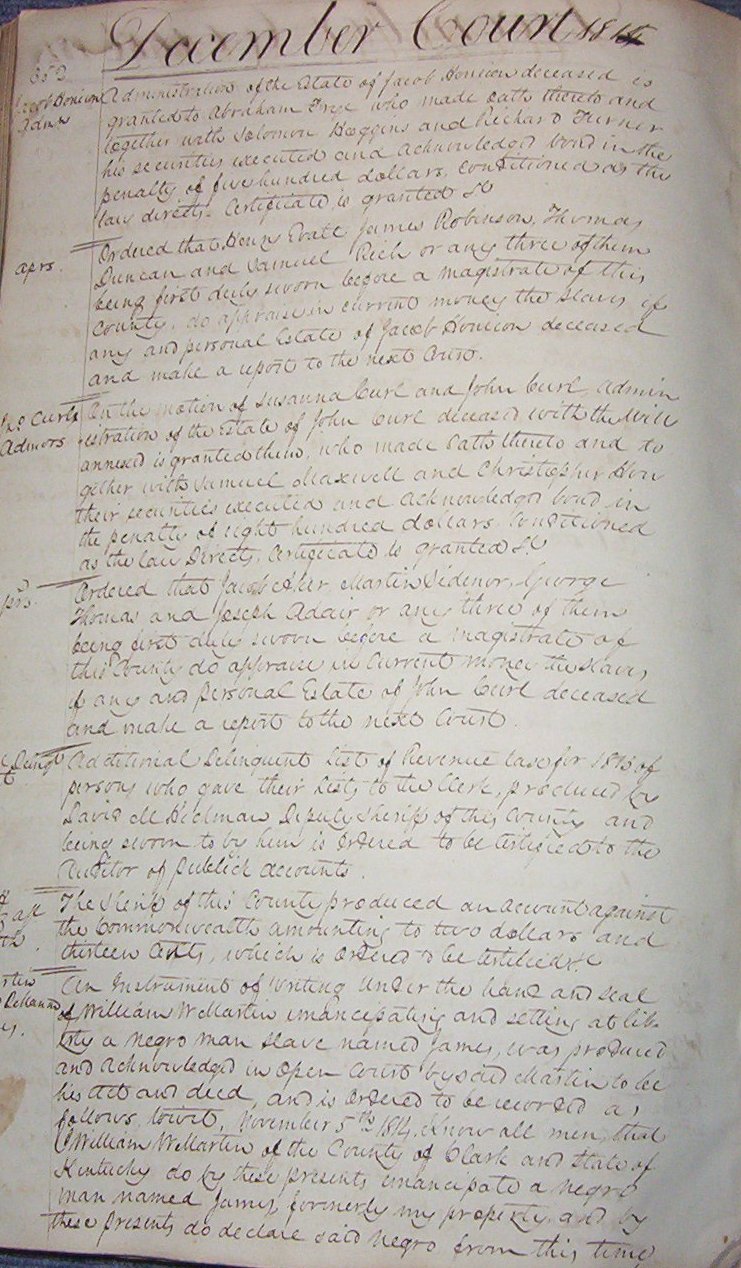 December Court 1814
353
Jacob Honicon Administration of the Estate of Jacob Honicon deceased is
Admr granted to Abraham Frye who made oath thereto and
together with Solomon Hoggins and Richard Turner
his securities executed and acknowledged bond in the
penalty of five hundred dollars, Conditioned as the
law directs. Certificate is granted &c
aprs. Ordered that Henry James Robinson, Thomas
Duncan and Samuel Rich or any three of them
being first duly sworn before a magistrate of this
County, do appraise in current money the slaves if
any and personal Estate of Jacob Honicon deceased
and make a report to the next Court.
Jno Curls On the motion of Susanna Curl and John Curl, Admin
Admors istration of the Estate of John Curl deceased with the Will
annexed is granted them, who made oath thereto and to
gether with Samuel Maxwell and Christopher
their securities executed and acknowledged bond in
the penalty of eight hundred dollars. Conditioned
as the law Directs, Certificate is granted &c
Ordered that Jacob Martin Sidenor, George
Thomas and Joseph Adair or any three of them
being first duly sworn before a magistrate of
this County do appraise in Current money the slaves
if any and personal Estate of John Curl deceased
and make a report to the next Court.
Additional Delinquent list of Revenue tax for 1813 of
persons who gave their lists to the Clerk, produced by
David Hickman Deputy Sheriff of this County and
being sworn to by him is Ordered to be testified to the
Auditor of publick accounts.
The Sheriff of this County produced an account against
the Commonwealth amounting to two dollars and
thirteen Cents, which is Ordered to be Certified &c
An Instrument of writing under the hand and seal
of William W Martin emancipating and setting at lib
erty a negro man slave named James, was produced
and acknowledged in Open Court by said Martin to be
his act and deed, and is Ordered to be recorded as
follows, towit, November 5th 1814. Know all men, that
I William W Martin of the County of Clark and State of
Kentucky do by these presents emancipate a negro
man named James, formerly my property, and by
these presents do declare said negro from this time